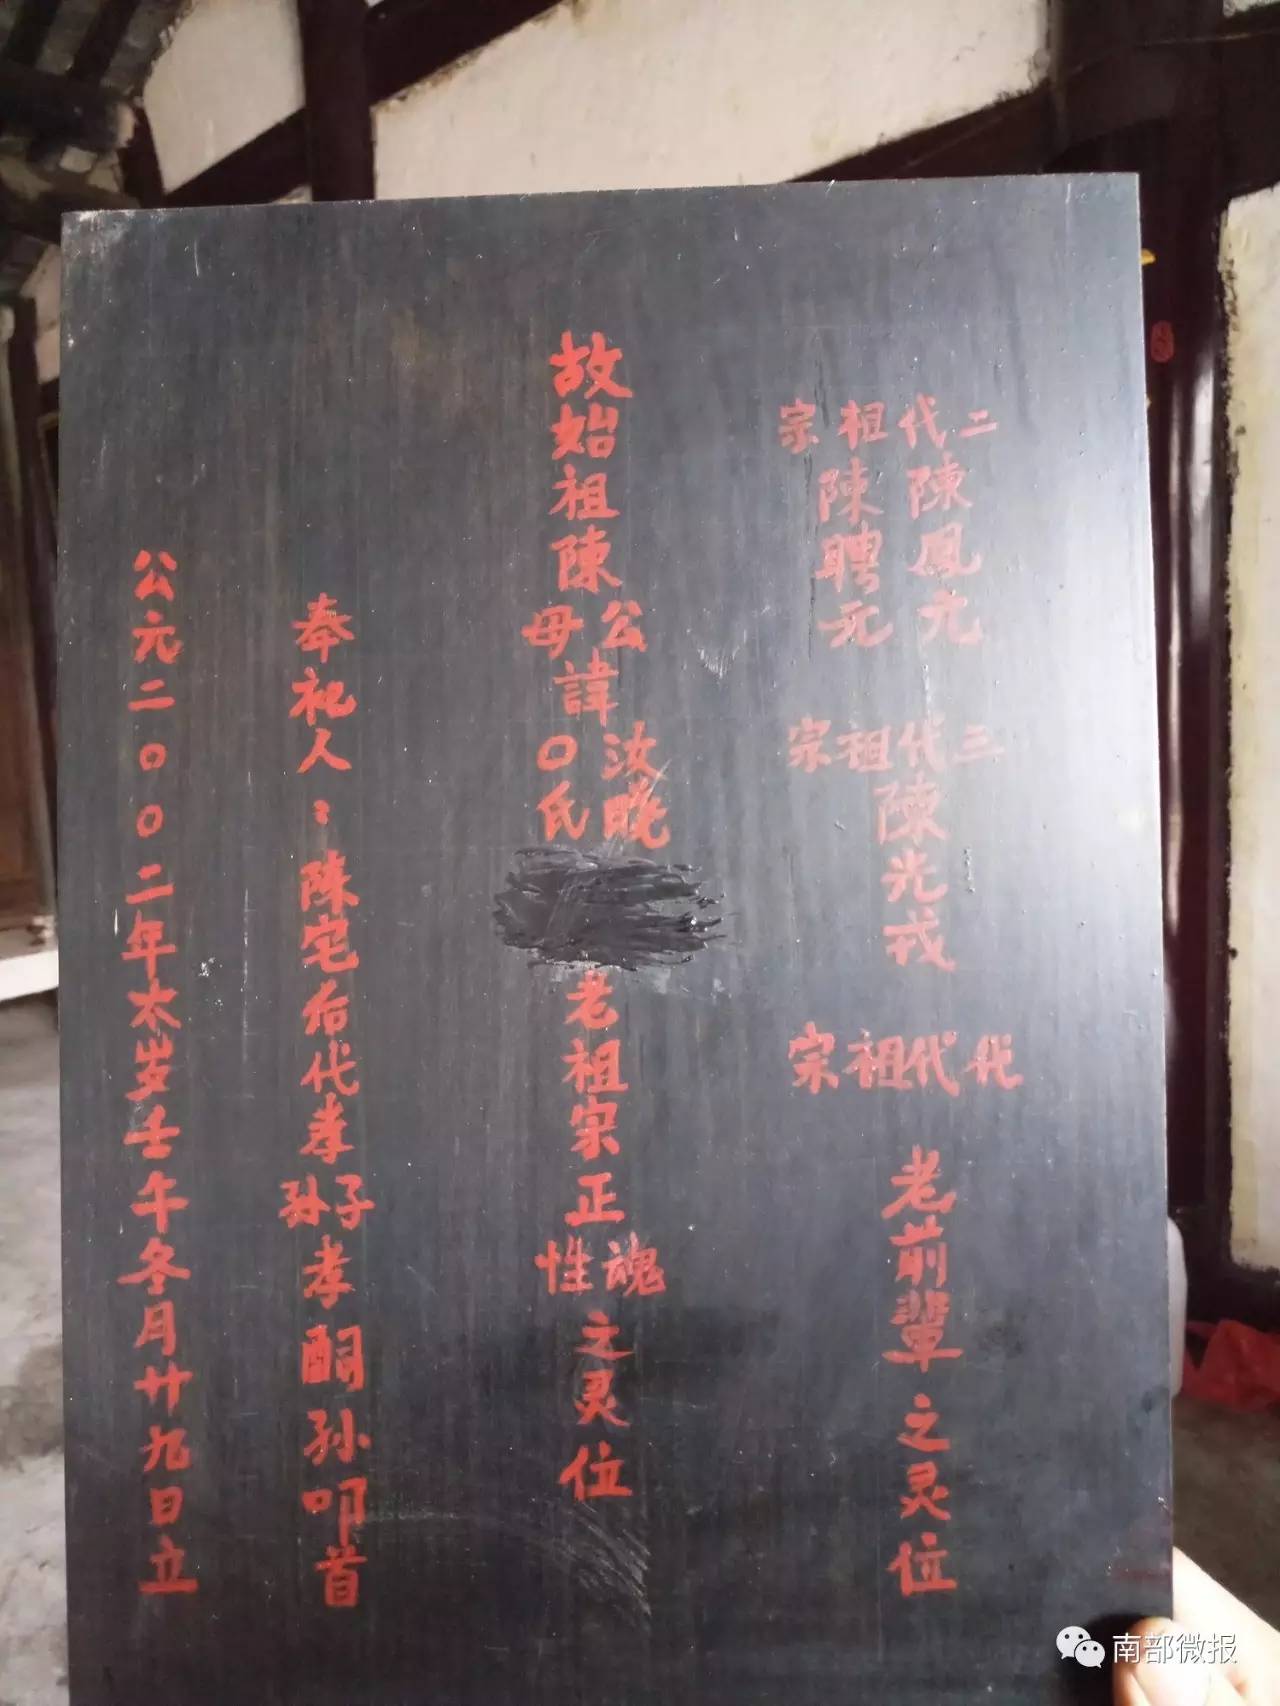 二代祖宗
陳鳳元
陳聘元
三代祖宗
陳光戎
代代祖宗
老前辈之灵位
故始祖陳
公
母
諱
汝晚
〇氏
老祖宗正
魂
性
之灵位
奉祀人：陈宅后代孝
子
孙
孝嗣孙叩首
公元二〇〇二年太岁壬午冬月廿九日立
南部微报